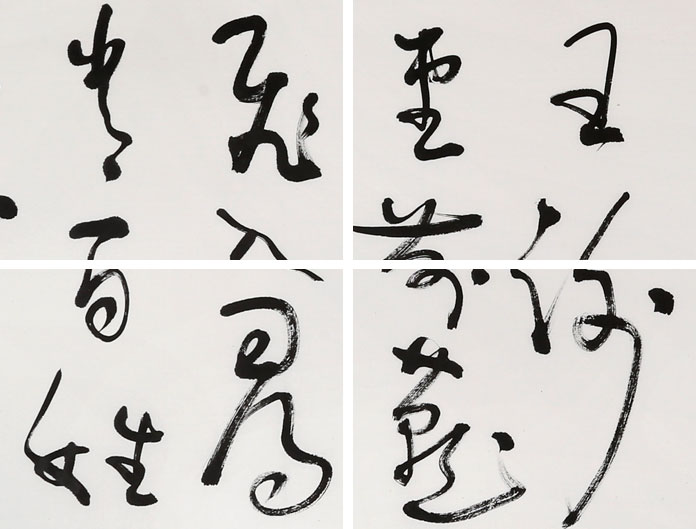 王謝
堂前燕
飛入尋
常百姓